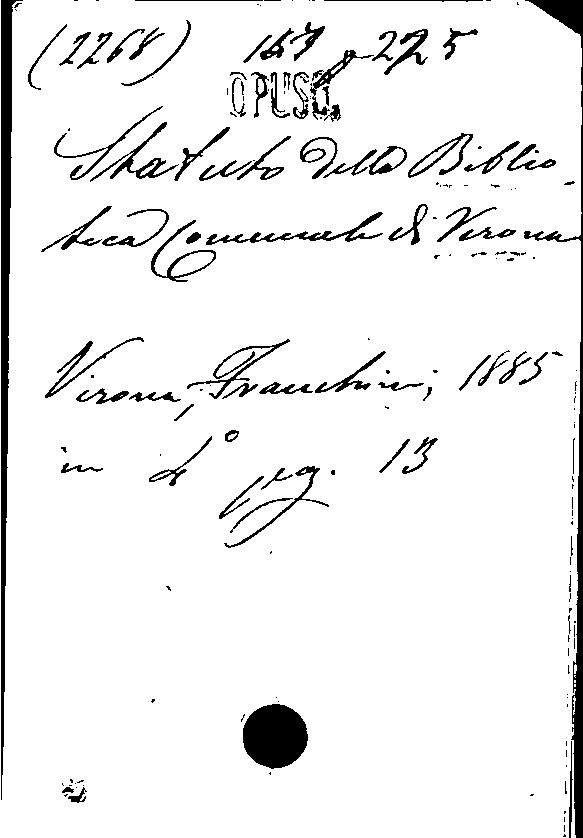 (2268) 157 g 225
OPUSC.
Statuto della Biblio
teca Comunale di Verona
Verona, Franchini, 1885
in 4° pag. 13